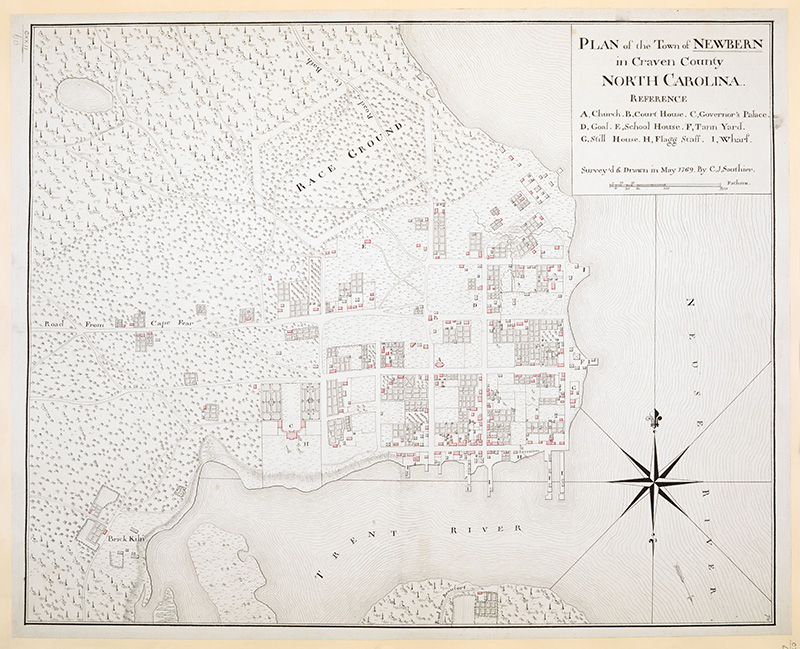 PLAN of the Town of NEWBERN
in Craven County
NORTH CAROLINA.
REFERENCE
A, Church. B, Court House. C, Governor's Palace.
D, Goal. E, School House. F, Tann Yard.
G, Still House. H, Flagg Staff. I, Wharf.
Survey'd & Drawn in May 1769. By C,J,Sauthier.
Fathom.
Road Bath
RACE GROUND
E
D
B
A
Road From Cape Fear
G
C
H
H
Brick Kiln
TRENT RIVER
NEUSE RIVER